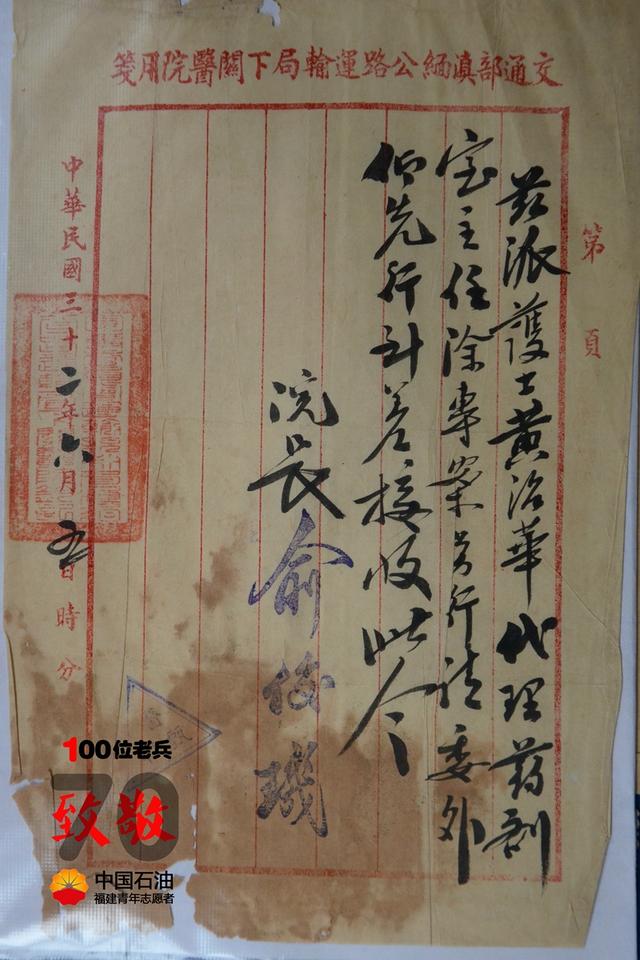 交通部滇緬公路運輸局下關醫院用箋
第 頁
茲派護士黃治華代理葯劑
室主任除專案另行請委外
仰先行到差接收此令
院長 俞 璣
中華民國三十二年六月五日時分
100位老兵
70
致敬
中国石油
福建青年志愿者